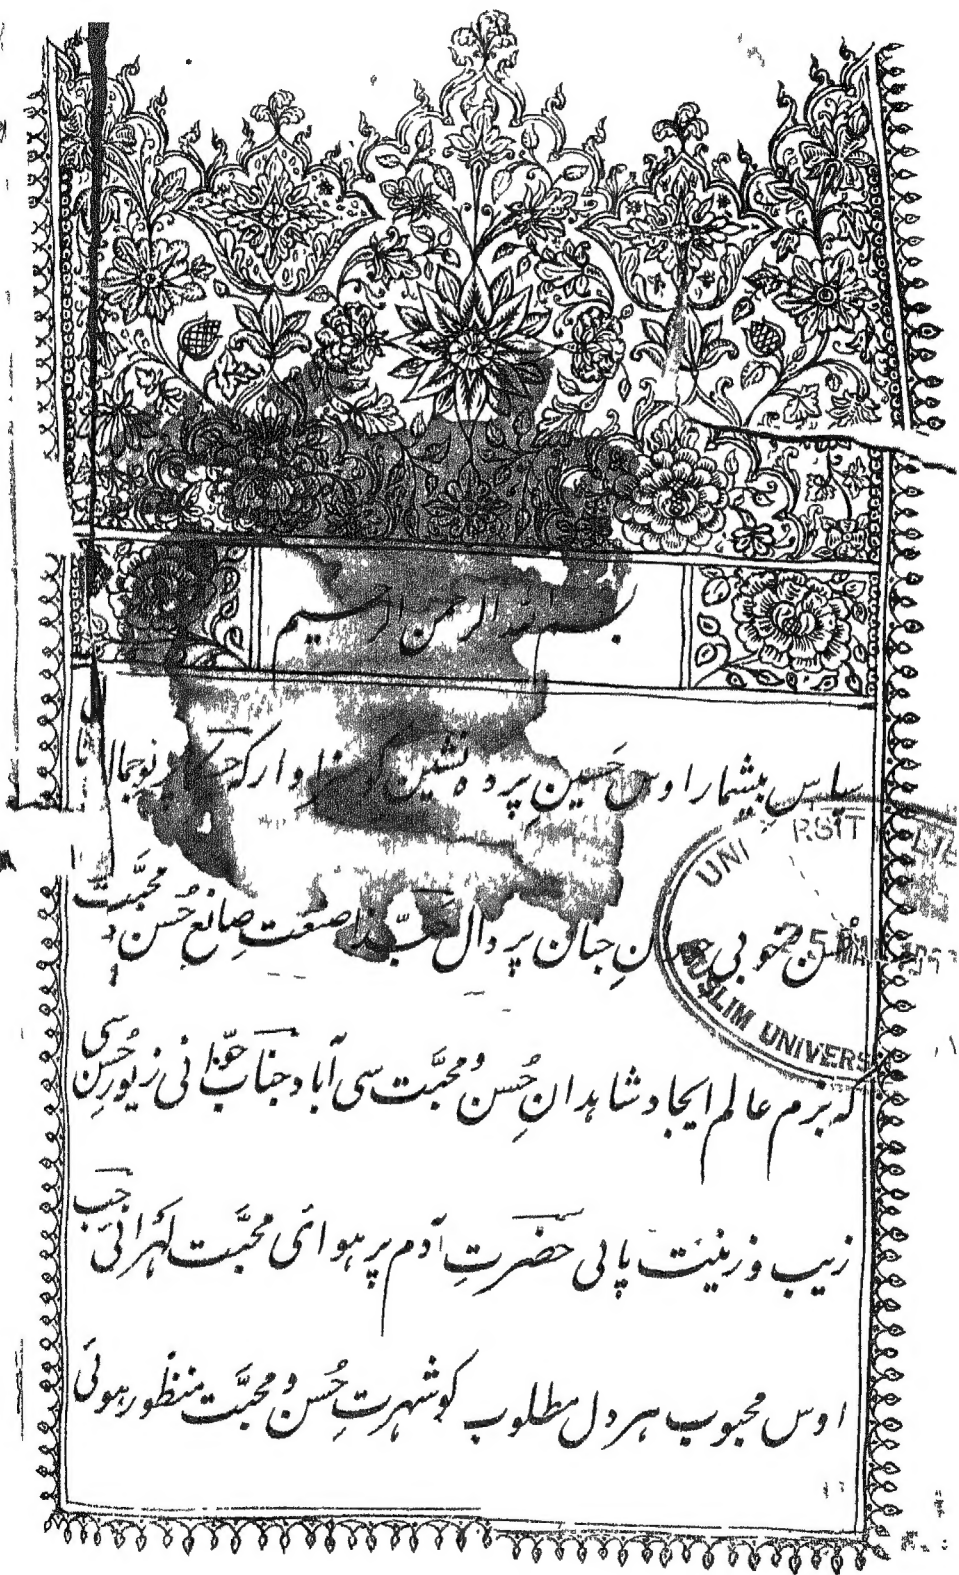 بسم الله الرحمن الرحیم
سپاس بیشمار اوس حسین پرده نشین کو سزاوار که جسکا پرتو جمال
حسن خوبی جنان پر دال حبّذا صنعت صانع حُسن محبّت
که بزم عالم ایجاد شاہدانِ حُسن و محبّت سی آباد جناب حوّا نی زیورِ حُسن سی
زیب و زینت پائی حضرتِ آدم پر ہوائی محبّت لہرائی جب
اوس محبوب ہر دل مطلوب کو شہرتِ حُسن و محبّت منظور ہوئی
UNI RSITY LIB
25
MUSLIM UNIVERSI